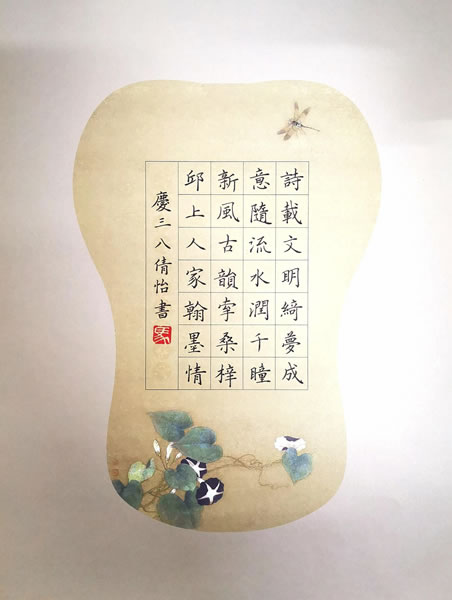 詩載文明綺夢成
意隨流水潤千瞳
新風古韻牽桑梓
邱上人家翰墨情
慶三八倩怡書